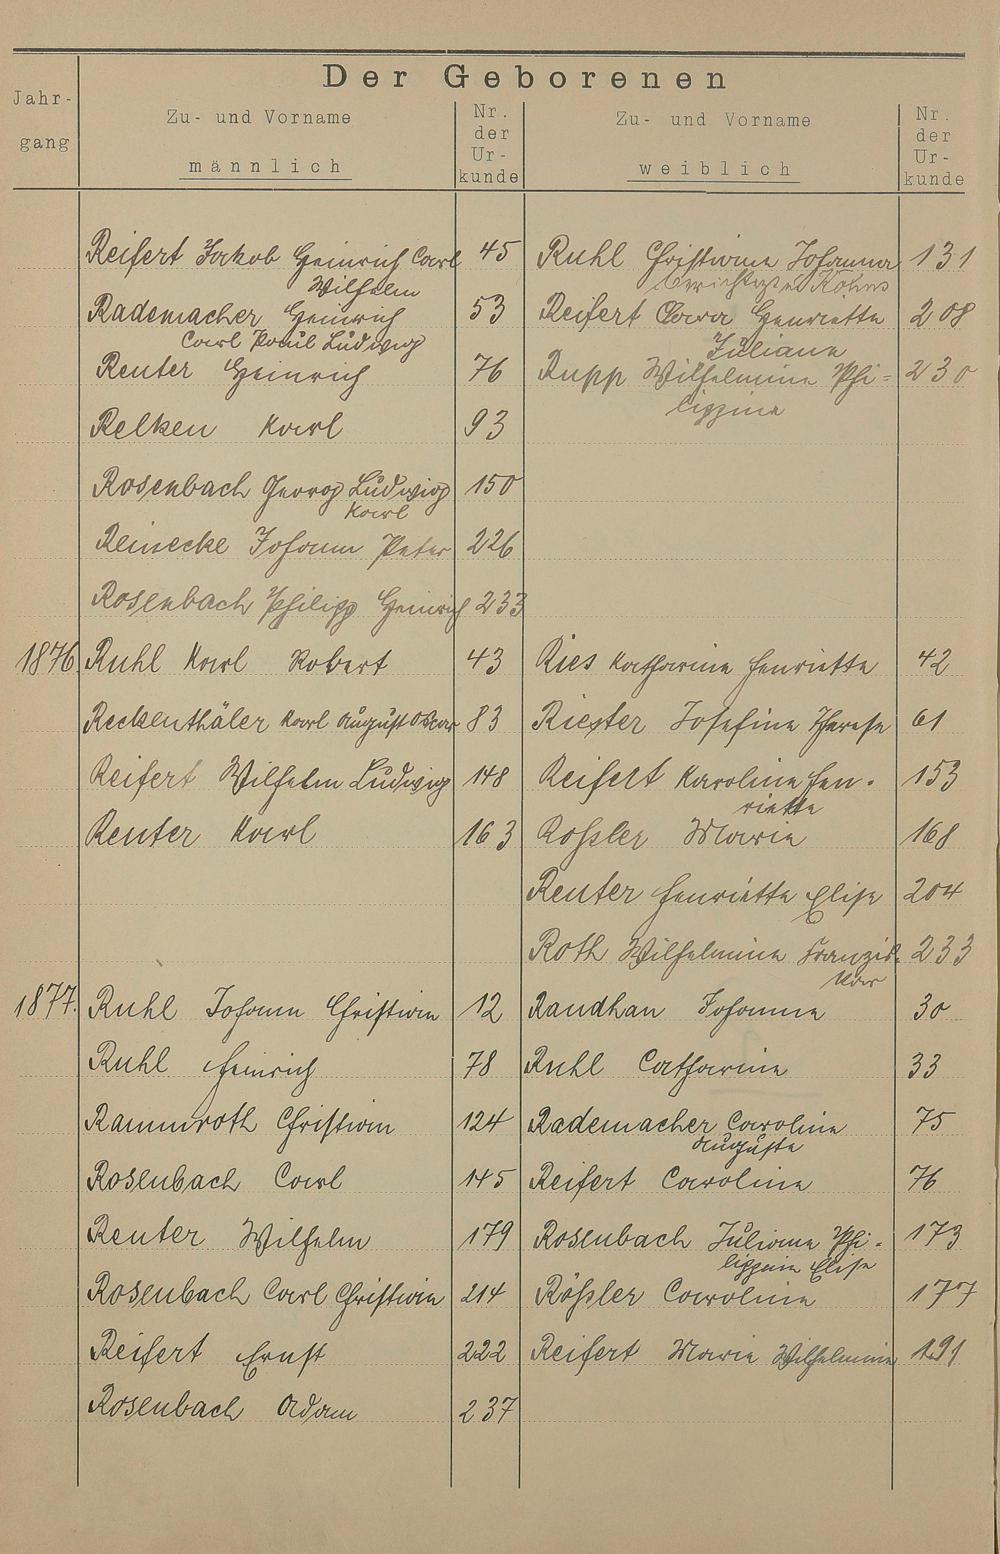 Der Geborenen
Jahr-
gang
Zu- und Vorname
männlich
Nr.
der
Ur-
kunde
Zu- und Vorname
weiblich
Nr.
der
Ur-
kunde
Reifert Jakob Heinrich Carl 45 Ruhl Christiane Johanna 131
Wilhelm berichtigt Köhns
Rademacher Heinrich 53 Reifert Clara Henriette 208
Carl Paul Ludwig Juliane
Reuter Heinrich 76 Rupp Wilhelmine Phi- 230
lippine
Relken Karl 93
Rosenbach Georg Ludwig 150
Karl
Reinecke Johann Peter 226
Rosenbach Philipp Heinrich 233
1876 Ruhl Karl Robert 43 Ries Katharine Henriette 42
Reckenthäler Karl August Oskar 83 Riester Josefine Therese 61
Reifert Wilhelm Ludwig 148 Reifert Karoline Hen-  153
riette
Reuter Karl 163 Roßler Marie 168
Reuter Henriette Elise 204
Roth Wilhelmine Franzis- 233
kar
1877. Ruhl Johann Christian 12 Randhan Johanne 30
Ruhl Heinrich 78 Ruhl Catharine 33
Rammroth Christian 124 Rademacher Caroline 75
Auguste
Rosenbach Carl 145 Reifert Caroline 76
Reuter Wilhelm 179 Rosenbach Juliane Phi- 173
lippine Elise
Rosenbach Carl Christian 214 Rößler Caroline 177
Reifert Ernst 222 Reifert Marie Wilhelmine 191
Rosenbach Adam 237